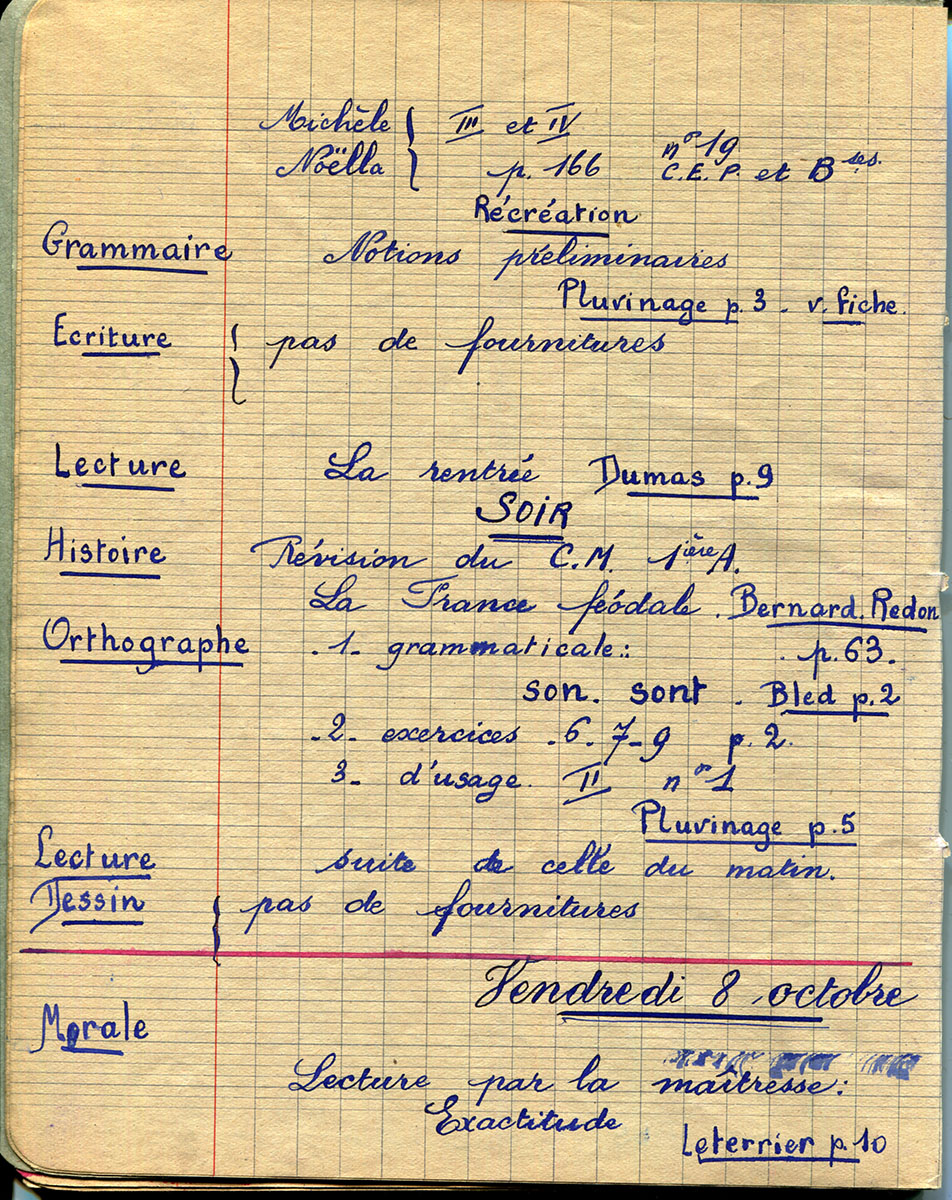 Michèle { III et IV n° 19
Noëlla p. 166 C.E.P. et B ses.
Récréation
Grammaire Notions préliminaires
Pluvinage p. 3 - v. fiche.
Ecriture { pas de fournitures
Lecture La rentrée Dumas p. 9
SOIR
Histoire Révision du C.M. 1ière A.
La France féodale. Bernard. Redon
Orthographe .1- grammaticale: p. 63.
son. sont. Bled p. 2
.2- exercices .6.7-9 p. 2.
3- d'usage. II n° 1
Pluvinage p. 5
Lecture suite de celle du matin.
Dessin { pas de fournitures
Vendredi 8 octobre
Morale
Lecture par la maîtresse:
Exactitude
Leterrier p. 10